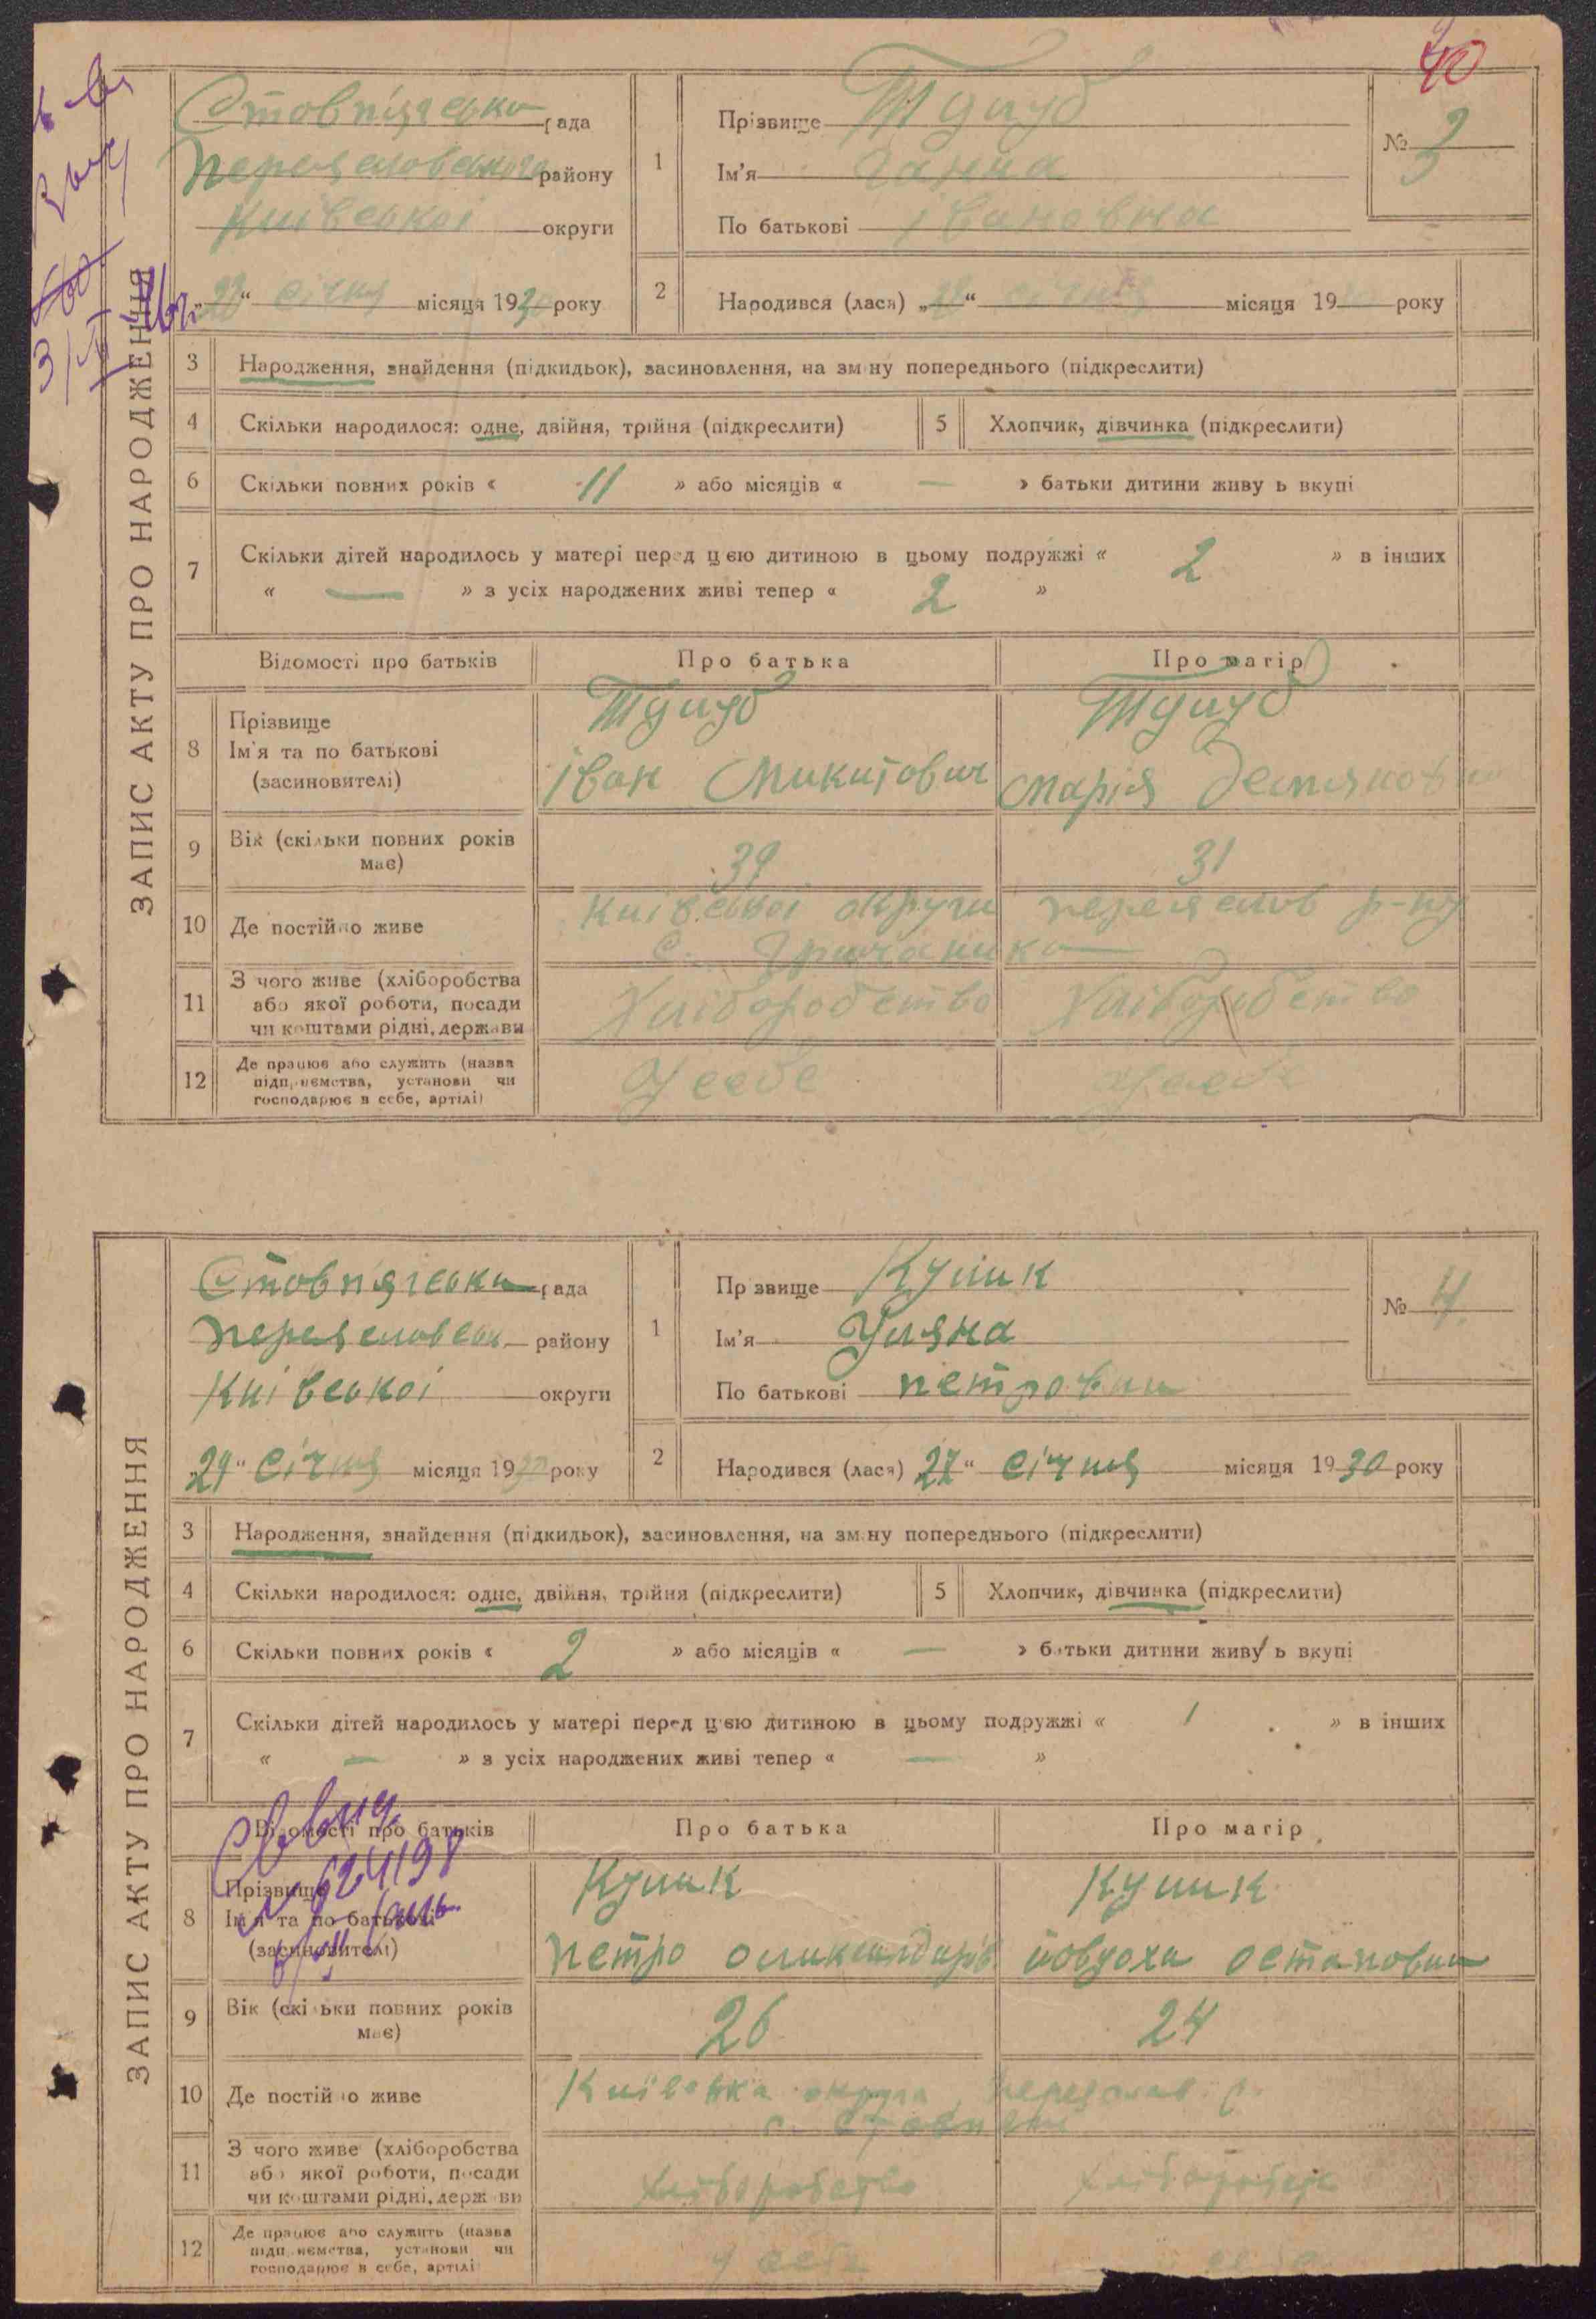 40
ЗАПИС АКТУ ПРО НАРОДЖЕННЯ
Стовп'язська рада
Переяславського району
Київської округи
„28“ січня місяця 1930 року
1
Прізвище
Ім'я Ганна
По батькові Івановна
№ 3
2 Народився (лася) „ “ січня місяця 19 року
3 Народження, знайдення (підкидьок), засиновлення, на зміну попереднього (підкреслити)
4 Скільки народилося: одне, двійня, трійня (підкреслити)
5 Хлопчик, дівчинка (підкреслити)
6 Скільки повних років « 11 » або місяців « — » батьки дитини живуть вкупі
7 Скільки дітей народилось у матері перед цією дитиною в цьому подружжі « 2 » в інших
« — » з усіх народжених живі тепер « 2 »
Відомості про батьків Про батька Про матір
8 Прізвище
Ім'я та по батькові
(засиновителі)
Іван Микитович
Марія
9 Вік (скільки повних років має)
39 31
10 Де постійно живе
Київської округи Переяслов р-ну
с.
11 З чого живе (хліборобства
або якої роботи, посади
чи коштами рідні, держави
Хліборобство Хліборобство
12 Де працює або служить (назва
підприємства, установи чи
господарює в себе, артілі)
У себе У себе
ЗАПИС АКТУ ПРО НАРОДЖЕННЯ
Стовп'язська рада
Переясловськ району
Київської округи
„29“ січня місяця 1930 року
1
Прізвище Кулик
Ім'я Уляна
По батькові Петровна
№ 4
2 Народився (лася) „27“ січня місяця 1930 року
3 Народження, знайдення (підкидьок), засиновлення, на зміну попереднього (підкреслити)
4 Скільки народилося: одне, двійня, трійня (підкреслити)
5 Хлопчик, дівчинка (підкреслити)
6 Скільки повних років « 2 » або місяців « — » батьки дитини живуть вкупі
7 Скільки дітей народилось у матері перед цією дитиною в цьому подружжі « 1 » в інших
« — » з усіх народжених живі тепер « — »
Відомості про батьків Про батька Про матір
8 Прізвище
Ім'я та по батькові
(засиновителі)
Кулик Кулик
Петро Йовдоха Остаповна
9 Вік (скільки повних років має)
26 24
10 Де постійно живе
Київська округа Переяслав. р.
с.
11 З чого живе (хліборобства
або якої роботи, посади
чи коштами рідні, держави
хліборобство
12 Де працює або служить (назва
підприємства, установи чи
господарює в себе, артілі
у себе